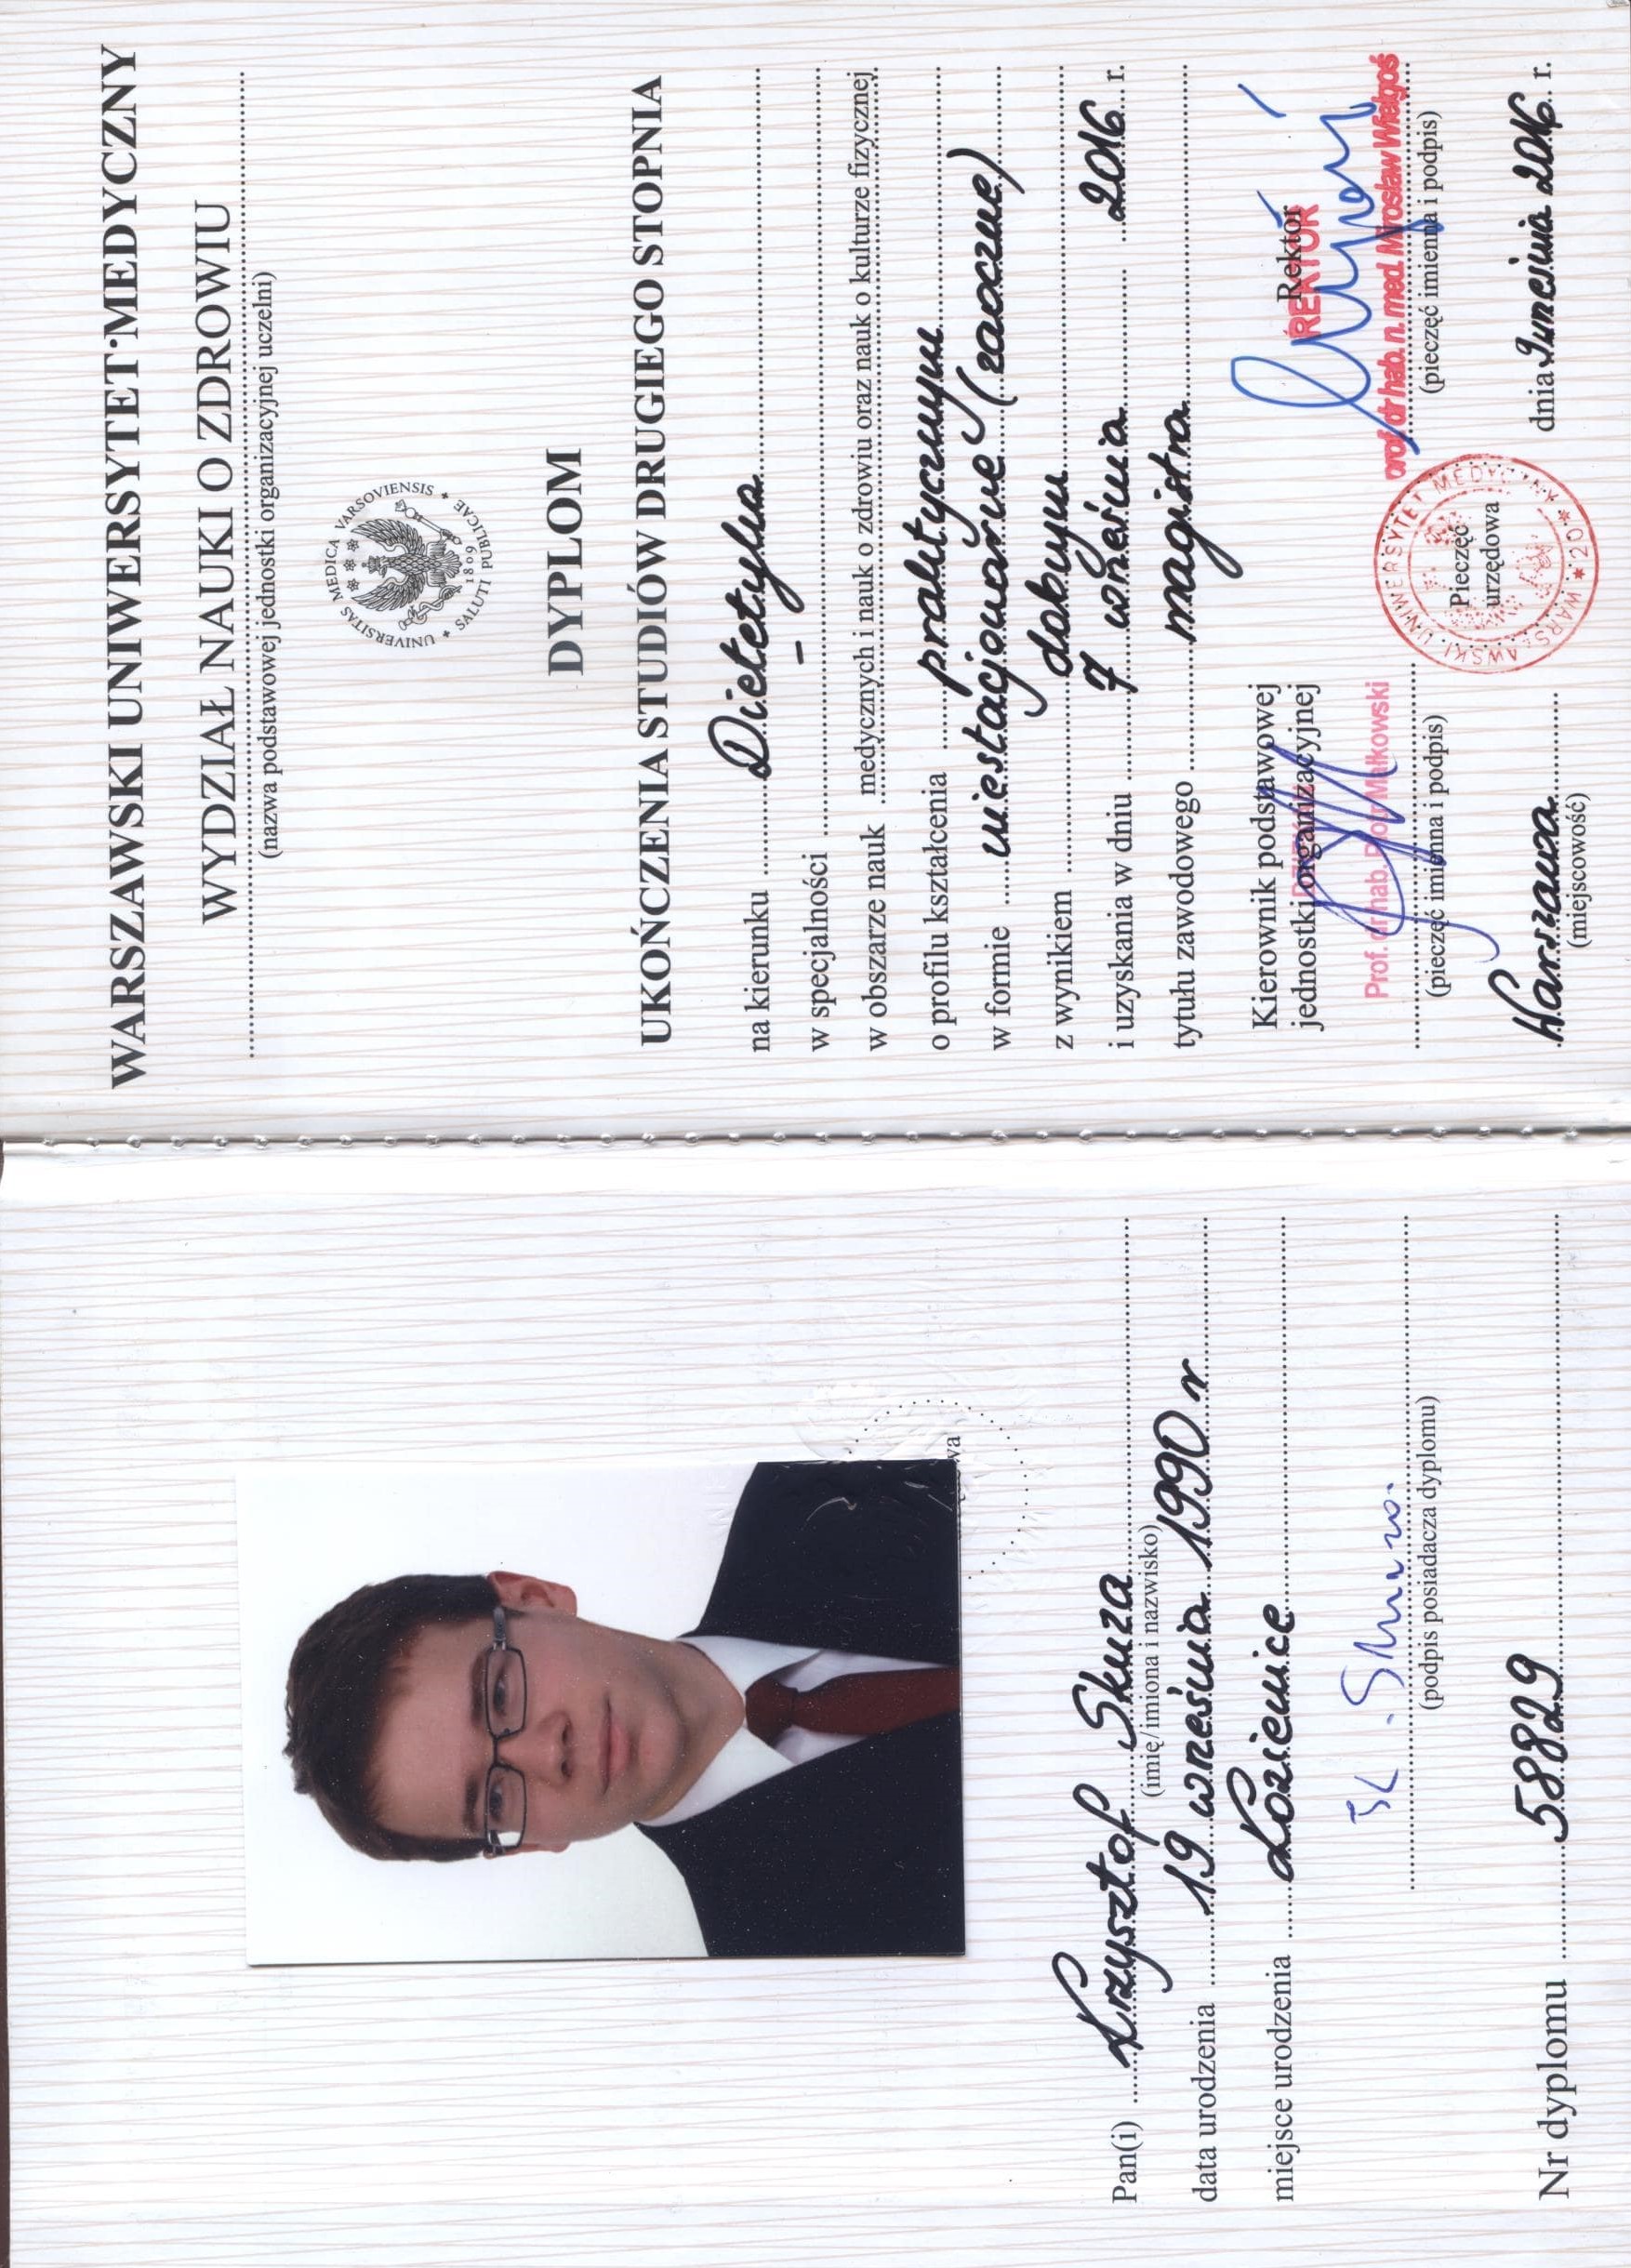 Pan(i) Krzysztof Skuza
(imię/imiona i nazwisko)
data urodzenia 19 września 1990 r
miejsce urodzenia Kozienice
K. Skuza
(podpis posiadacza dyplomu)
Nr dyplomu 58829
WARSZAWSKI UNIWERSYTET MEDYCZNY
WYDZIAŁ NAUKI O ZDROWIU
(nazwa podstawowej jednostki organizacyjnej uczelni)
UNIVERSITAS MEDICA VARSOVIENSIS
1809
SALUTI PUBLICAE
DYPLOM
UKOŃCZENIA STUDIÓW DRUGIEGO STOPNIA
na kierunku Dietetyka
w specjalności –
w obszarze nauk medycznych i nauk o zdrowiu oraz nauk o kulturze fizycznej
o profilu kształcenia praktycznym
w formie niestacjonarne (zaoczne)
z wynikiem dobrym
i uzyskania w dniu 7 września 2016 r.
tytułu zawodowego magistra
Kierownik podstawowej
jednostki organizacyjnej
DZIEKAN
Prof. dr hab. Piotr Małkowski
(pieczęć imienna i podpis)
Rektor
REKTOR
prof. dr hab. n. med. Mirosław Wielgoś
(pieczęć imienna i podpis)
WARSZAWSKI UNIWERSYTET MEDYCZNY
* 20 *
Pieczęć
urzędowa
Warszawa
(miejscowość)
dnia 9 września 2016 r.